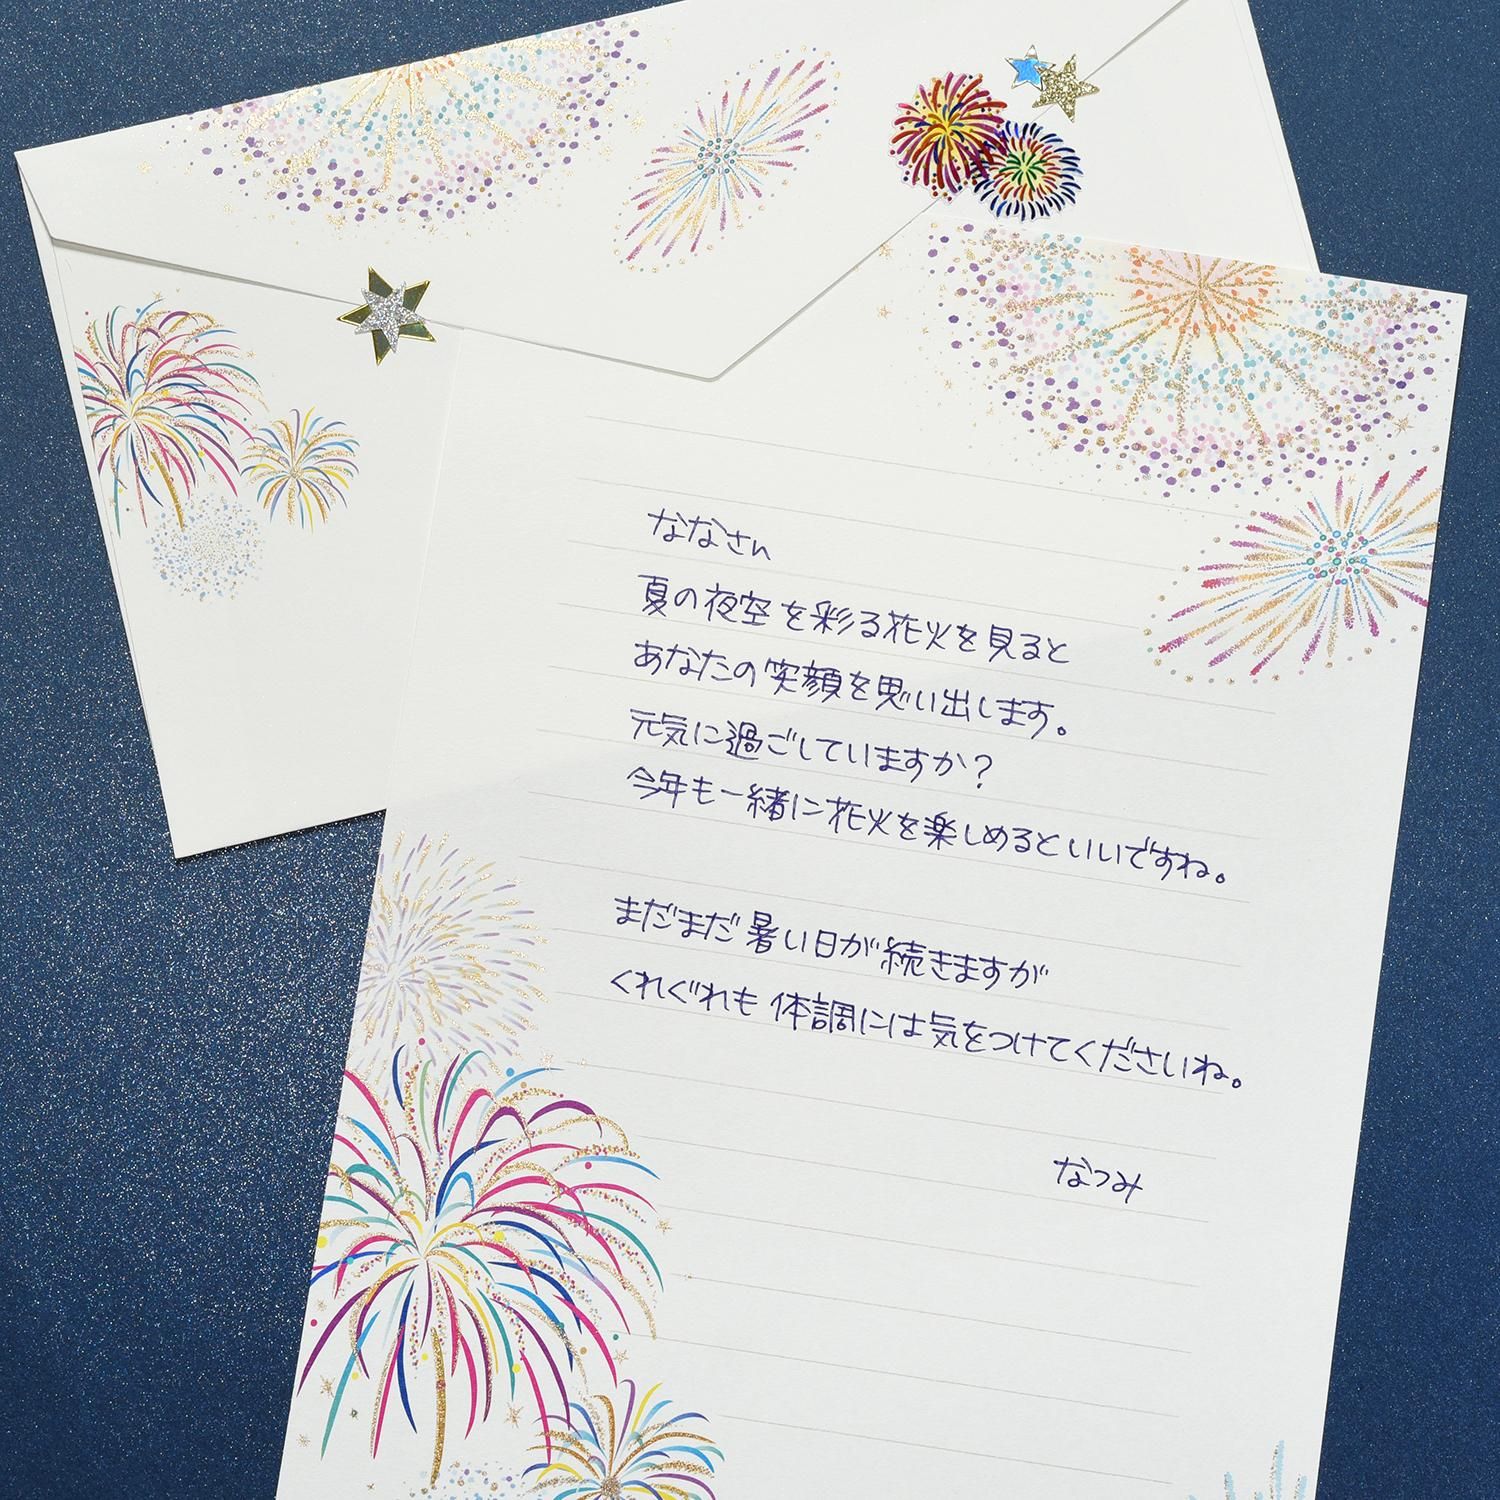 ななさん
夏の夜空を彩る花火を見ると
あなたの笑顔を思い出します。
元気に過ごしていますか?
今年も一緒に花火を楽しめるといいですね。
まだまだ暑い日が続きますが
くれぐれも体調には気をつけてくださいね。
なつみ